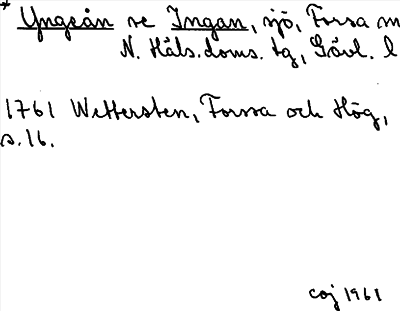 * Yngeån se Ingan, sjö, Forsa sn
N. Häls.doms. tg, Gävl. l
1761 Wettersten, Forssa och Hög,
s.16.
coj 1961